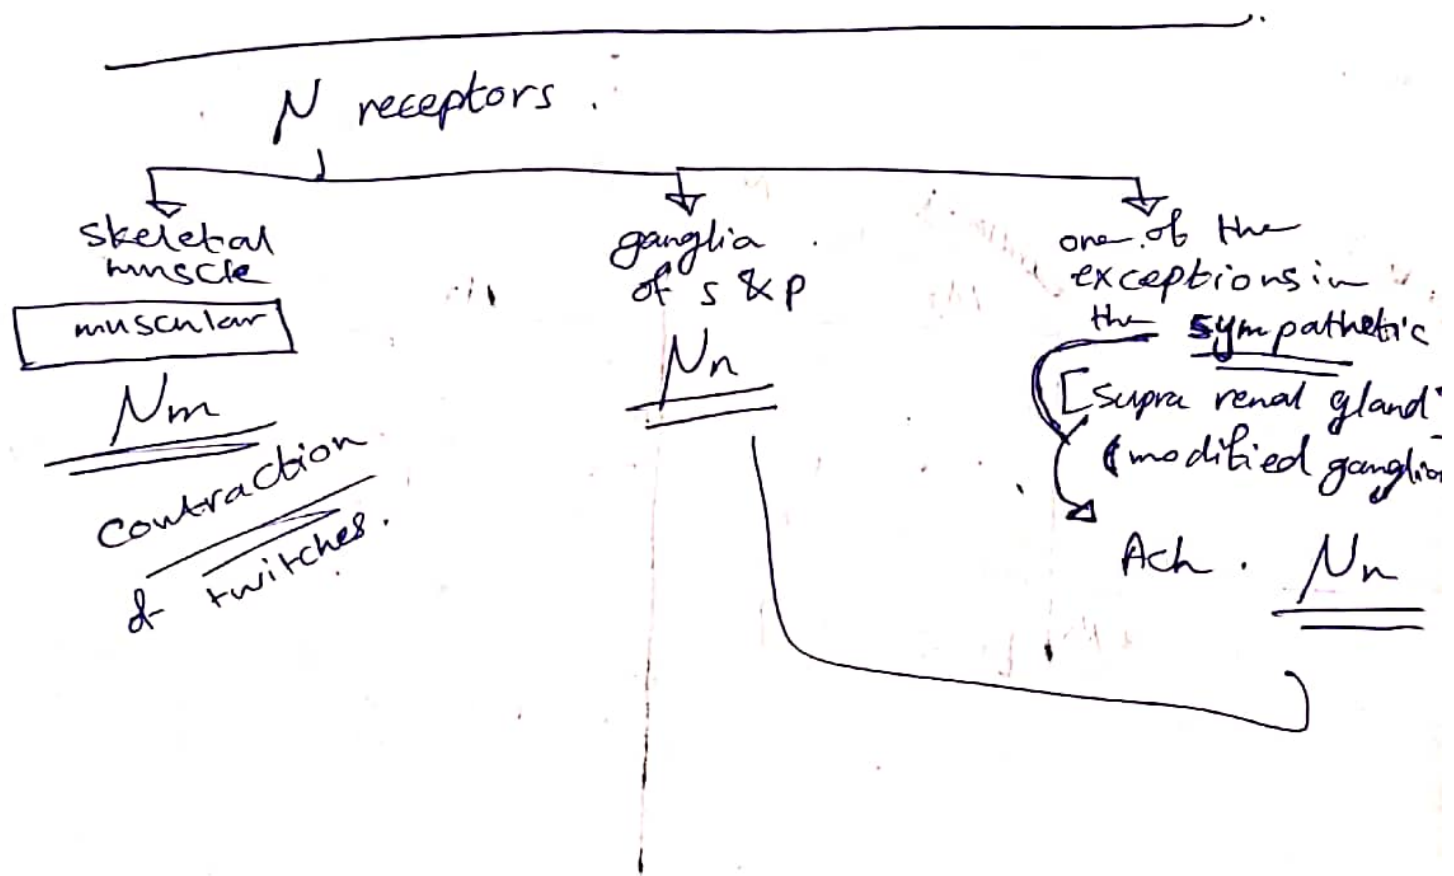 N receptors.
skeletal
muscle
muscular
Nm
contraction
& twitches.
ganglia
of s & p
Nn
one of the
exceptions in
the sympathetic
[supra renal gland
(modified ganglion
Ach. Nn